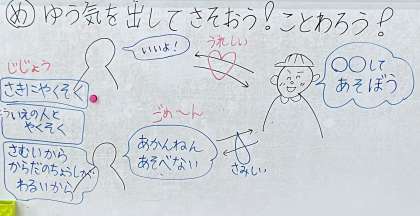 め ゆう気を出してさそおう！ことわろう！
いいよ！
うれしい
じじょう
さきにやくそく
○○して
あそぼう
ういえの人と
やくそく
ごめ〜ん
さむいから
からだのちょうしが
わるいから
あかんねん
あそべない
さみしい